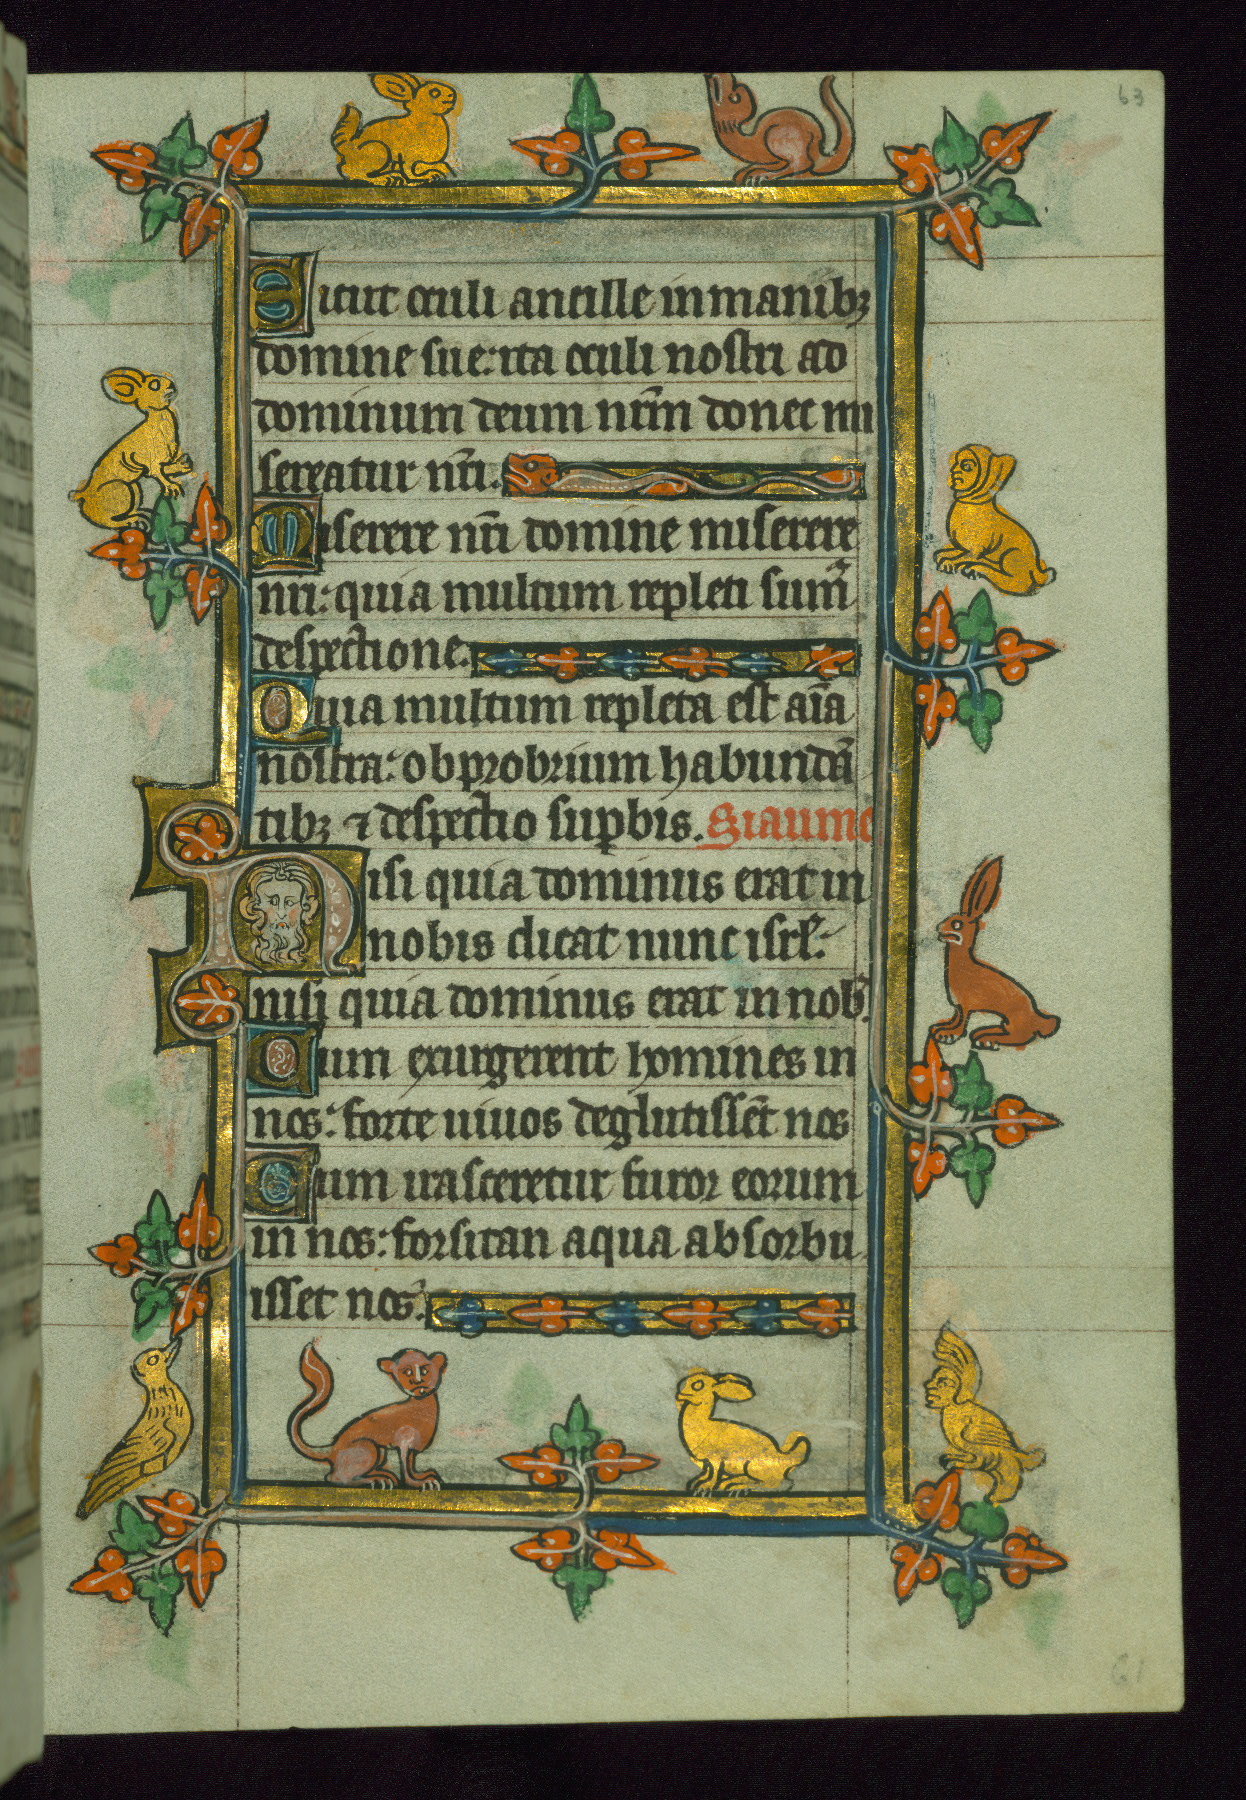 63
Sicut oculi ancille in manibꝫ
domine sue: ita oculi nostri ad
dominum deum nr̄m donec mi
sereatur nr̄i.
Miserere nr̄i domine miserere
nr̄i: quia multum repleti sumꝰ
despectione.
Quia multum repleta est aīa
nostra: obprobrium habundā
tibꝫ ⁊ despectio suꝑbis. Siaume
Nisi quia dominus erat in
nobis dicat nunc isrl̄:
nisi quia dominus erat in nob̄.
Cum exurgerent homines in
nos: forte uiuos deglutissēt nos
Cum irasceretur furor eorum
in nos: forsitan aqua absorbu
isset nos.
61